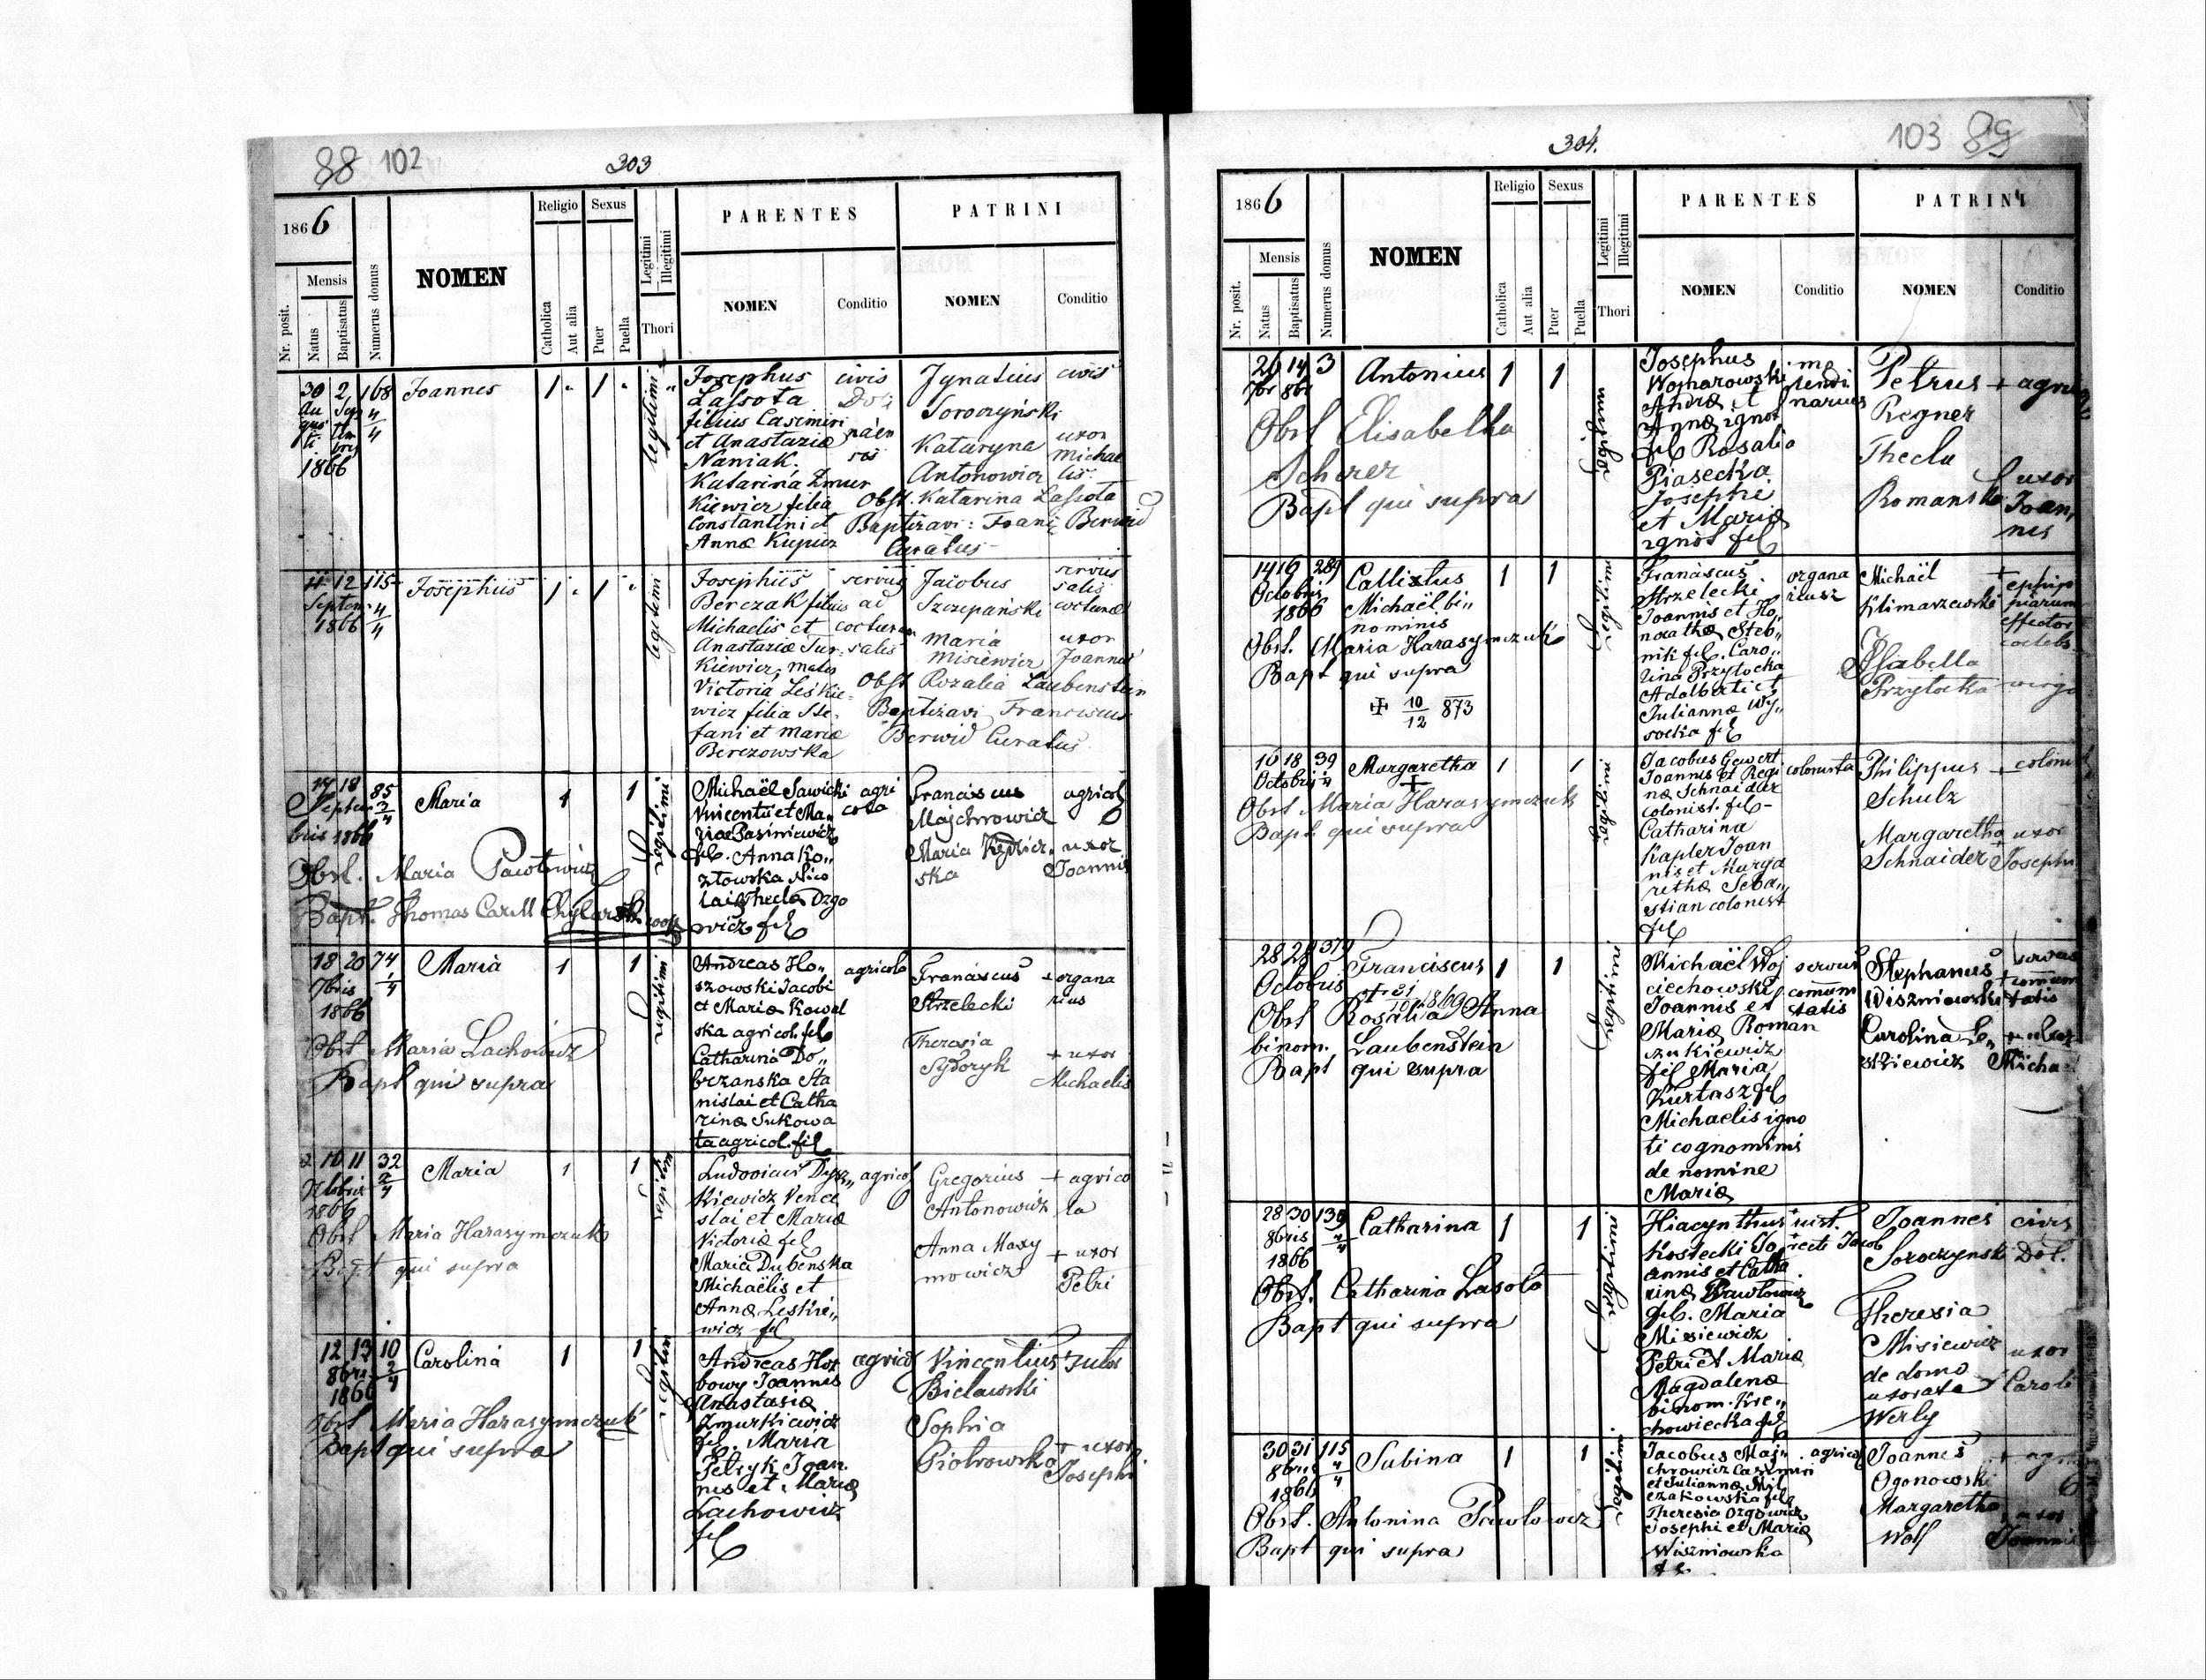 88 102
303
1866
Nr. posit.
Mensis
Natus
Baptisatus
Numerus domus
NOMEN
Religio
Catholica
Aut alia
Sexus
Puer
Puella
Legitimi
Illegitimi
Thori
PARENTES
NOMEN
Conditio
PATRINI
NOMEN
Conditio
30 2 168
4/4
1866
Joannes
1 1
legitimi
Josephus
Lassota
filius Casimiri
et Anastaziæ
Naniak.
Katarina Zmur
kiewicz filia
Constantini et
Anna Kupicz
civis
Ignatius
Soroczyński
Kataryna
Antonowicz
civis
uxor
Michae
lis.
Obst. Katarina Lassota
Baptizavi: Franc. Berwid
Curatus
11 12 115
Septem
4/4
1866
Josephus
1 1
legitimi
Josephus
Berczak filius
Michaelis et
Anastaziæ Tur
kiewicz, mater
Victoria Leskie
wicz filia Ste
fani et Mariæ
Berezowska
servus
ad
coctura
salis
Jacobus
Szczepański
Maria
Misiewicz
servus
salis
cocturæ
uxor
Joannis
Obst Rozalia Laubenstein
Baptizavi Franciscus
Berwid Curatus
17 18 85
2/4
Septem
bris 1866
Maria
1 1
legitimi
Michaël Sawicki
Vincentii et Ma„
riæ Basiniewicz
fil. Anna Ko„
złowska Nico
lai Thecla Ozgo
wicz fil
agri
cola
Franciscus
Majchrowicz
Maria
ska
agricol
uxor
Joannis
Obst. Maria Pawłowicz
Bapt. Thomas
18 20 74
1/4
7bris
1866
Maria
1 1
legitimi
Andreas Ho„
szowski Jacobi
et Mariæ Kowal
ska agricol. fil
Catharina Do„
brzanska Sta
nislai et Catha
rinæ Sukowa
ta agricol. fil
agricola
Franciscus
Strzelecki
Theresia
Sydoryk
+ organa
rius
+ uxor
Michaelis
Obst Maria Lachowicz
Bapt qui supra
10 11 32
2/4
1866
Maria
1 1
legitim
Ludovicus Dysz„
kiewicz Vence
slai et Mariæ
Victoriæ fil
Maria Dubenska
Michaëlis et
Annæ Leskie„
wicz fil
agricol
Gregorius
Antonowicz
Anna Maxy
mowicz
+ agrico
la
+ uxor
Petri
Obst Maria Harasymczuk
Bapt qui supra
12 13 10
2/4
8bris
1866
Carolina
1 1
legitim
Andreas Hor
bowy Joannis
Anastasiæ
Zmurkiewicz
fil. Maria
Petryk Joan
nis et Mariæ
Lachowicz
fil
agricol
Vincentius
Bielawski
Sophia
Piotrowska
+ sutor
+ uxor
Josephi
Obst Maria Harasymczuk
Bapt qui supra
304.
103 89
1866
Nr. posit.
Mensis
Natus
Baptisatus
Numerus domus
NOMEN
Religio
Catholica
Aut alia
Sexus
Puer
Puella
Legitimi
Illegitimi
Thori
PARENTES
NOMEN
Conditio
PATRINI
NOMEN
Conditio
26 14 3
Antonius
1 1
legitimi
Josephus
Womarowski
Andreæ et
Annæ ignot
fil Rosalia
Piasecka
Josephi
et Mariæ
ignot fil
me
ndi
narius
Petrus
Regner
Thecla
Romanska
uxor
Joan
nis
Obst Elisabetha
Scherer
Bapt qui supra
14 16 289
Octobris
1866
Callixtus
Michaël, bi„
nominis
1 1
legitimi
Franciscus
Strzelecki
Joannis et Ho
noratha Steb„
nik fil. Caro„
lina Przyłocka
Adalberti et
Julianna Wy„
socka fil
organa
riusz
Michaël
Klimaszewski
Isabella
Przyłocka
effector
coelebs
virgo
Obst. Maria Harasymczuk
Bapt qui supra
✠ 10/12 873
16 18 39
Octobris
Margaretha
+
1 1
legitimi
Jacobus Gewert
Joannis et Regi
næ Schnaider
colonist. fil
Catharina
Kapler Joan
nis et Marga
rethæ Seba„
stian colonist
fil
colonista
Philippus
Schulz
Margaretha
Schnaider
colonist
uxor
Josephi
Obst Maria Harasymczuk
Bapt qui supra
28 29 379
Octobris
Franciscus
1869
1 1
legitimi
Michaël Woj
ciechowski
Joannis et
Mariæ Roman
zukiewicz
fil Maria
Kurtasz fil
Michaelis igno
ti cognominis
de nomine
Mariæ
servus
comuni
tatis
Stephanus
Wiszniowski
Carolina Le„
skiewicz
servus
Micha
Obst Rosalia Anna
binom. Laubenstein
Bapt qui supra
28 30 130
4/4
8bris
1866
Catharina
1 1
legitimi
Hiacynthus
Kostecki Jo
annis et Catha
rinæ Pawłowicz
fil. Maria
Misiewicz
Petri et Mariæ
Magdalenæ
binom. Kre„
chowiecka fil
Joannes
Soroczynski
Theresia
Misiewicz
de domo
uxorata
Werly
civis
Dol.
uxor
Caroli
Obst. Catharina Lasota
Bapt qui supra
30 31 115
4/4
8bris
1866
Sabina
1 1
legitimi
Jacobus Maj„
chrowicz Casimiri
et Juliannæ Mil
czakowska fil
Theresia Ozgowicz
Josephi et Mariæ
Wiszniowska
fil
agricol
Joannes
Ogonowski
Margaretha
Wolf
uxor
Joannis
Obst. Antonina Pawłowicz
Bapt qui supra